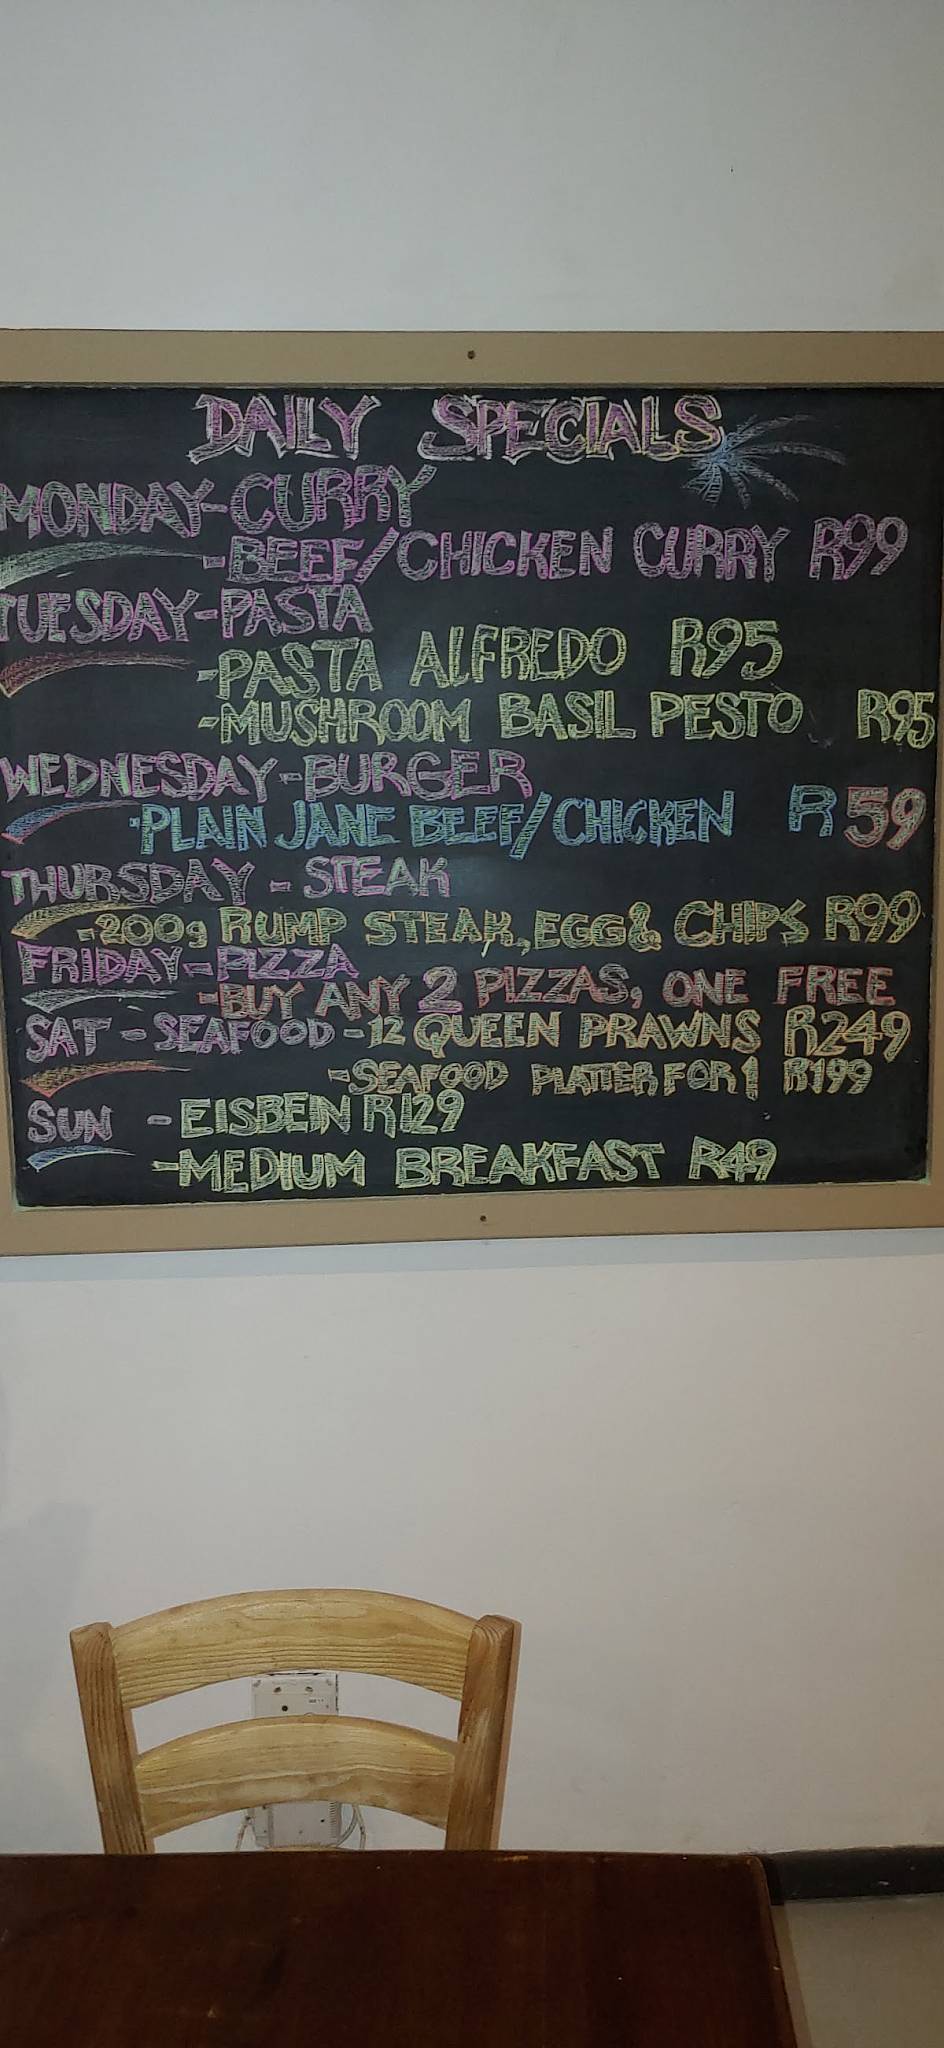 DAILY SPECIALS
MONDAY-CURRY
-BEEF/CHICKEN CURRY R99
TUESDAY-PASTA
-PASTA ALFREDO R95
-MUSHROOM BASIL PESTO R95
WEDNESDAY-BURGER
-PLAIN JANE BEEF/CHICKEN R59
THURSDAY - STEAK
-200g RUMP STEAK, EGG & CHIPS R99
FRIDAY-PIZZA
-BUY ANY 2 PIZZAS, ONE FREE
SAT - SEAFOOD -12 QUEEN PRAWNS R249
-SEAFOOD PLATTER FOR 1 R199
SUN - EISBEIN R129
-MEDIUM BREAKFAST R49